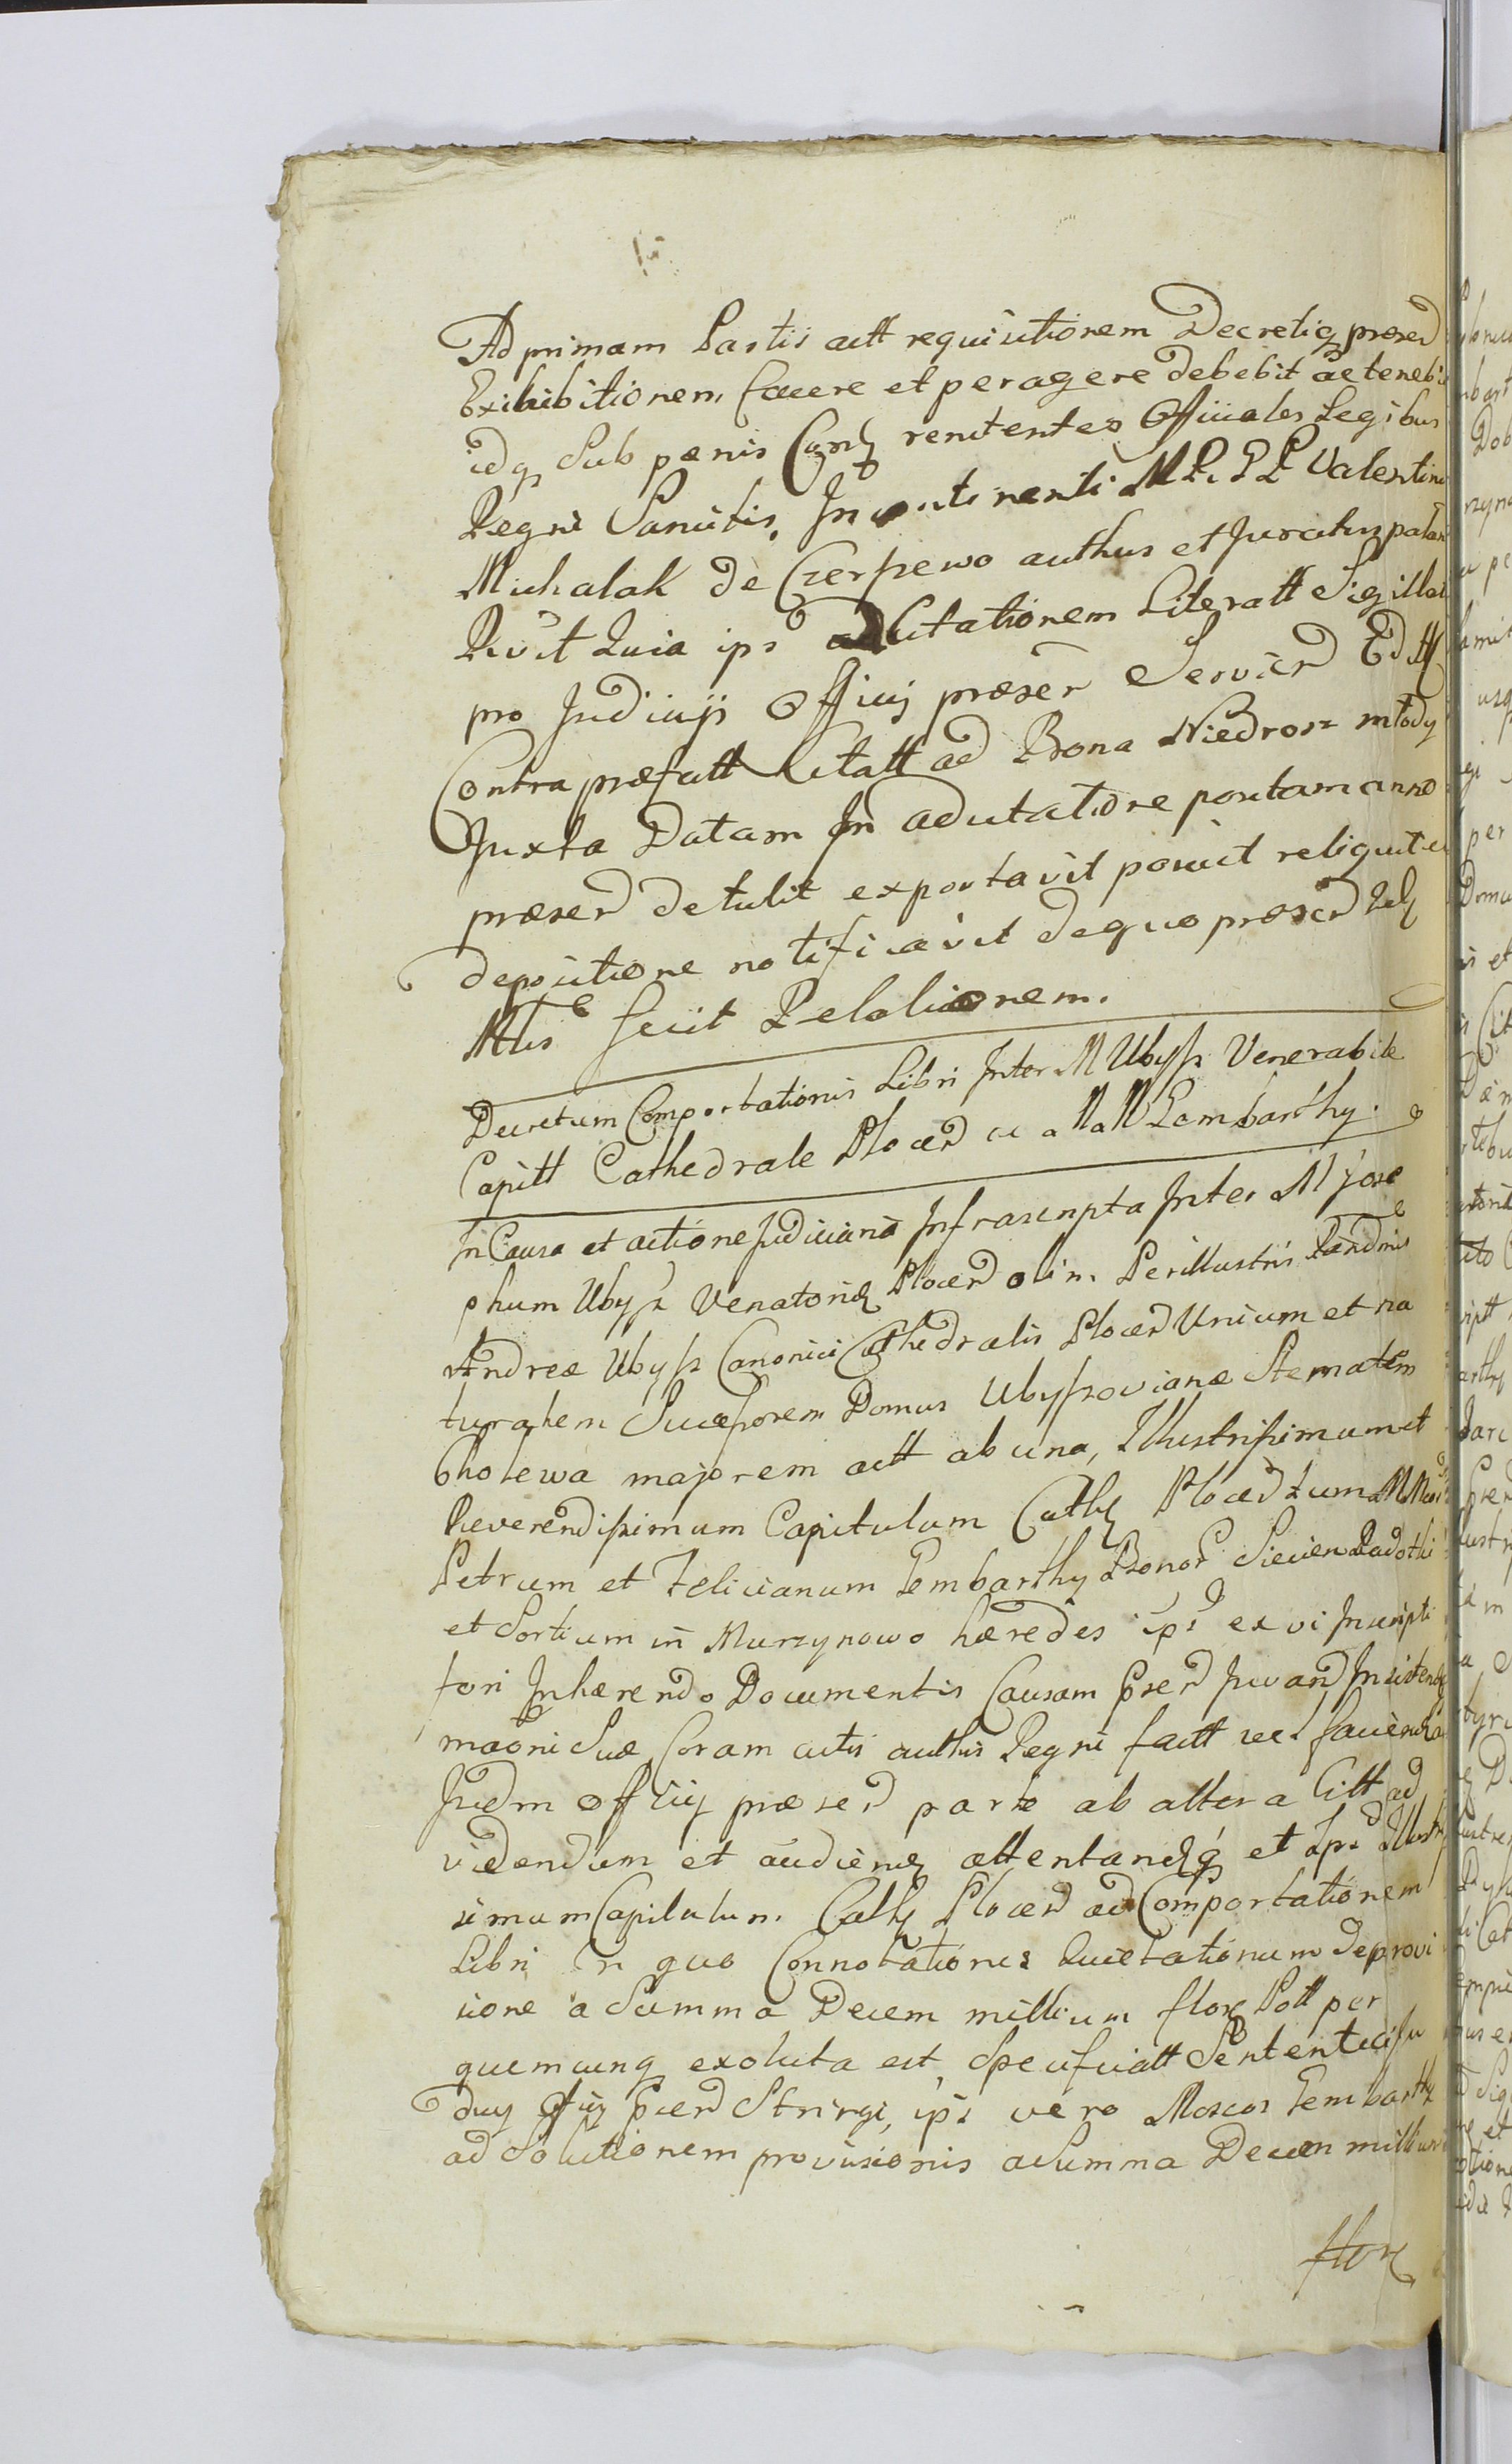 Ad primam Partis actt requisitionem Decretiq praesend
Exihibitionem facere et peragere debebit ac tenebit
idq Sub paenis Contra renitentes Officiales Legibus
Regni Sancitis. In continenti M R: P P Valentinus
Michalak de Czerpewo authus et Juratus palam
Rcvit Quia ips adCitationem Literatt Sigillat
pro Judicijs Officij praesen Serviend Editt
Contra praefatt Citatt ad Bona Niedroz młody
Juxta Datam In adcitatione positam anno
praesend detulit exportavit posuit reliquit
depositione notificavit de quo praesend
Mtus fecit Relationem.
Decretum Comportationis Libri Inter M Ubysz Venerabile
Capitt Cathedrale Plocen ac MM Lembarthy.
In Causa et actione Judiciaria Infrascripta Inter M Jose
phum Ubysz Venatorid Plocen olim Perillustris Randmi
Andreae Ubysz Canonici Cathedralis Plocen Unicum et na
turalem Successorem Domus Ubyszovianae Stematem
Cholewa majorem actt ab una, Illustrissimum et
Reverendissimum Capitulum Cathl Plocen tum M
Petrum et Felicianum Lembarthy Bonor Siecien Radotki
et Sortium in Murzynowo haeredes ips ex vi Inscripti
tori Inhaerendo Documentis Causam praesend Juvand Insistend
maoni Suae Coram actis authis Regni factt vel faciend
Judm Officij praesend parte ab altera Citt ad
videndum et audiend attentandq et Ips Illustris
simum Capitulum Cathl Plocen ad Comportationem
Libri In quo Connotationes Quietationum de provi
sione a Summa Decem millium flor Poll per
quemcunq exoluta est, Specificatt Sententia Ju
dicij Officij praesend Stringi, ips vero Moscos Lembarthy
ad Solutionem provisionis a Summa Decem millium
flor